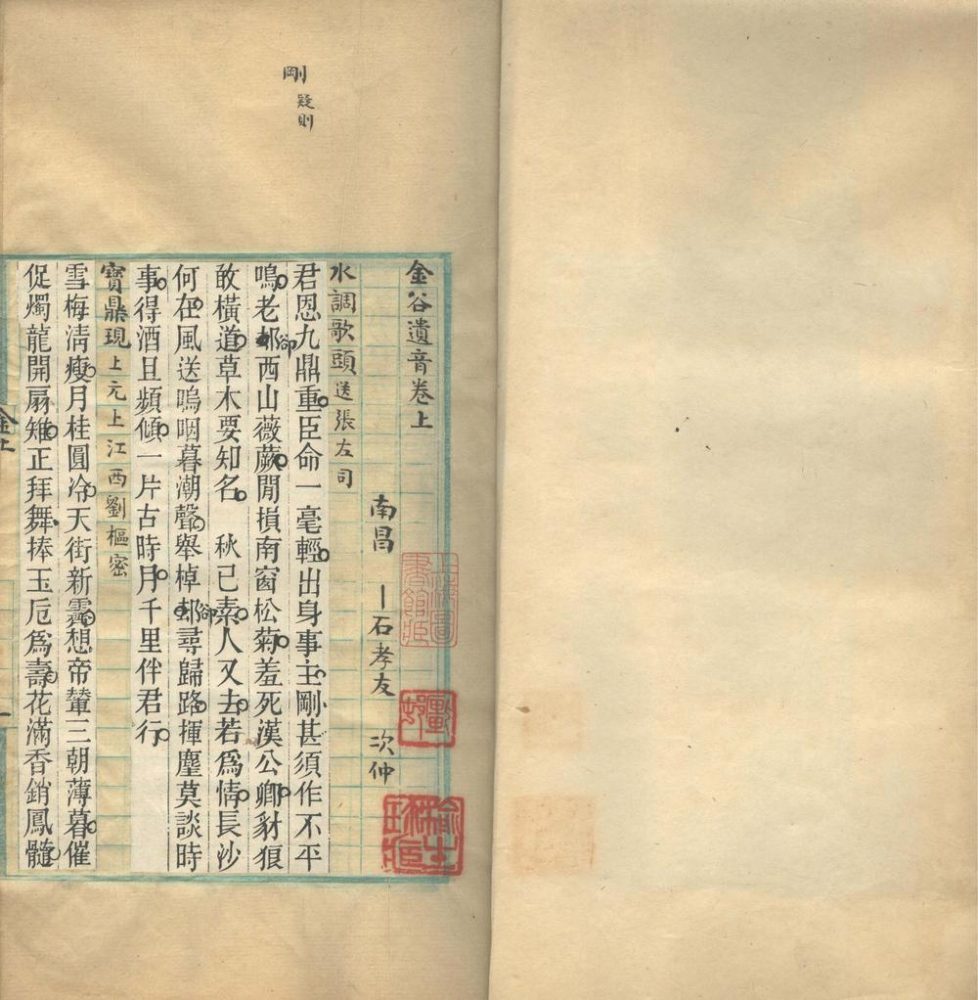 剛疑則
金谷遺音卷上
南昌 石孝友 次仲
水調歌頭送張左司
君恩九鼎重臣命一毫輕出身事主剛甚須作不平
鳴老卻西山薇蕨閒損南窗松菊羞死漢公卿豺狼
敢橫道草木要知名 秋已素人又去若爲情長沙
何在風送嗚咽暮潮聲舉棹卻尋歸路揮麈莫談時
事得酒且頻傾一片古時月千里伴君行
寶鼎現上元上江西劉樞密
雪梅清瘦月桂圓冷天街新霽想帝輦三朝薄暮催
促燭龍開扇雉正拜舞捧玉卮爲壽花滿香銷鳳髓
金上
一
上海圖書館藏